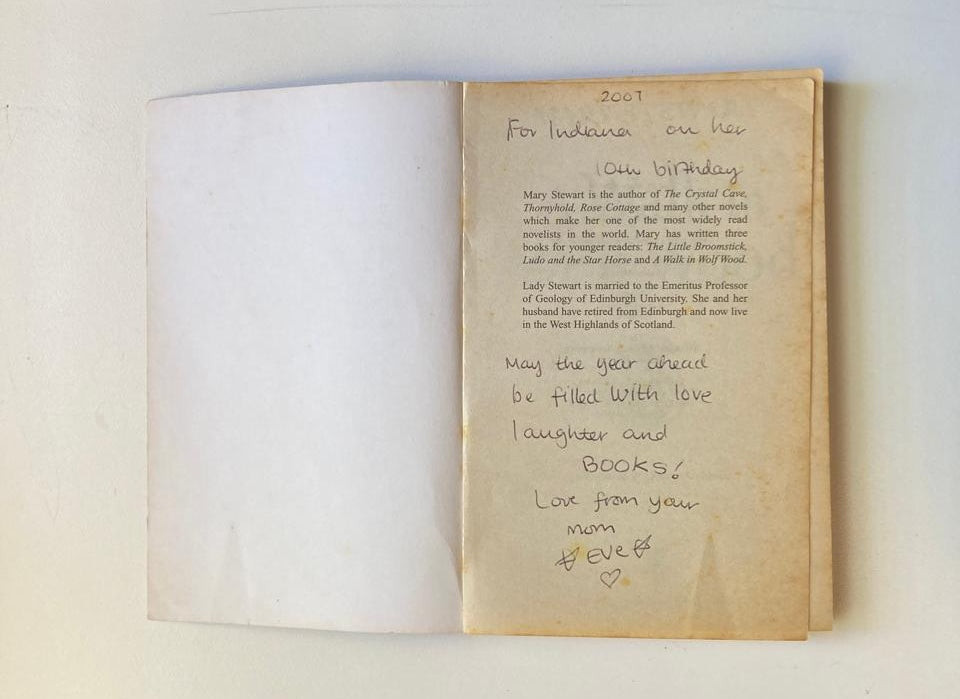 2007
For Indiana on her
10th birthday
Mary Stewart is the author of The Crystal Cave,
Thornyhold, Rose Cottage and many other novels
which make her one of the most widely read
novelists in the world. Mary has written three
books for younger readers: The Little Broomstick,
Ludo and the Star Horse and A Walk in Wolf Wood.
Lady Stewart is married to the Emeritus Professor
of Geology of Edinburgh University. She and her
husband have retired from Edinburgh and now live
in the West Highlands of Scotland.
May the year ahead
be filled with love
laughter and
BOOKS!
Love from your
mom
EVE